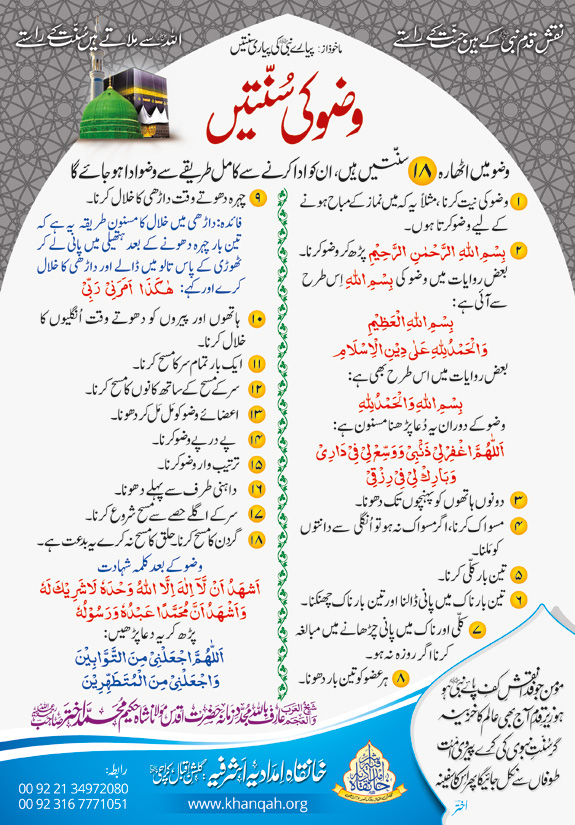 نقش قدم نبی کے ہیں جنت کے راستے
اللہ سے ملاتے ہیں سنت کے راستے
ماخوذ از: پیارے نبی ﷺ کی پیاری سنتیں
وضو کی سُنّتیں
وضو میں اٹھارہ ۱۸ سنّتیں ہیں، ان کو ادا کرنے سے کامل طریقے سے وضو ادا ہو جائے گا
۱ وضو کی نیت کرنا، مثلاً یہ کہ میں نماز کے مباح ہونے
کے لیے وضو کرتا ہوں۔
۲ بِسْمِ اللهِ الرَّحْمٰنِ الرَّحِيْمِ پڑھ کر وضو کرنا۔
بعض روایات میں وضو کی بِسْمِ اللهِ اِس طرح
سے آئی ہے:
بِسْمِ اللهِ الْعَظِيْمِ
وَالْحَمْدُ لِلهِ عَلٰى دِيْنِ الْاِسْلَامِ
بعض روایات میں اس طرح بھی ہے:
بِسْمِ اللهِ وَالْحَمْدُ لِلهِ
وضو کے دوران یہ دُعا پڑھنا مسنون ہے:
اَللّٰهُمَّ اغْفِرْ لِيْ ذَنْبِيْ وَوَسِّعْ لِيْ فِيْ دَارِيْ
وَبَارِكْ لِيْ فِيْ رِزْقِيْ
۳ دونوں ہاتھوں کو پہنچوں تک دھونا۔
۴ مسواک کرنا، اگر مسواک نہ ہو تو اُنگلی سے دانتوں
کو مَلنا۔
۵ تین بار کلّی کرنا۔
۶ تین بار ناک میں پانی ڈالنا اور تین بار ناک چھنکنا۔
۷ کلّی اور ناک میں پانی چڑھانے میں مبالغہ
کرنا اگر روزہ نہ ہو۔
۸ ہر عضو کو تین بار دھونا۔
۹ چہرہ دھوتے وقت داڑھی کا خلال کرنا۔
فائدہ: داڑھی میں خلال کا مسنون طریقہ یہ ہے کہ
تین بار چہرہ دھونے کے بعد ہتھیلی میں پانی لے کر
ٹھوڑی کے پاس تالو میں ڈالے اور داڑھی کا خلال
کرے اور کہے: هٰكَذَا اَمَرَنِيْ رَبِّيْ
۱۰ ہاتھوں اور پیروں کو دھوتے وقت اُنگلیوں کا
خلال کرنا۔
۱۱ ایک بار تمام سر کا مسح کرنا۔
۱۲ سر کے مسح کے ساتھ کانوں کا مسح کرنا۔
۱۳ اعضائے وضو کو مَل مَل کر دھونا۔
۱۴ پے در پے وضو کرنا۔
۱۵ ترتیب وار وضو کرنا۔
۱۶ داہنی طرف سے پہلے دھونا۔
۱۷ سر کے اگلے حصے سے مسح شروع کرنا۔
۱۸ گردن کا مسح کرنا، حلق کا مسح نہ کرے یہ بدعت ہے۔
وضو کے بعد کلمہ شہادت
اَشْهَدُ اَنْ لَّا اِلٰهَ اِلَّا اللهُ وَحْدَهٗ لَا شَرِيْكَ لَهٗ
وَاَشْهَدُ اَنَّ مُحَمَّدًا عَبْدُهٗ وَرَسُوْلُهٗ
پڑھ کر یہ دُعا پڑھیں:
اَللّٰهُمَّ اجْعَلْنِيْ مِنَ التَّوَّابِيْنَ
وَاجْعَلْنِيْ مِنَ الْمُتَطَهِّرِيْنَ
مؤمن جو فدا نقش کف پائے نبی ہو
ہو زیر قدم آج بھی عالم کا خزینہ
گر سنت نبوی کی کرے پیروی امت
طوفاں سے نکل جائے گا پھر اس کا سفینہ
اختر
شیخ العرب والعجم عارف باللہ مجدد زمانہ حضرت اقدس مولانا شاہ حکیم محمد اختر صاحب
خانقاہ امدادیہ اشرفیہ: گلشن اقبال، کراچی
www.khanqah.org
رابطہ:
00 92 21 34972080
00 92 316 7771051